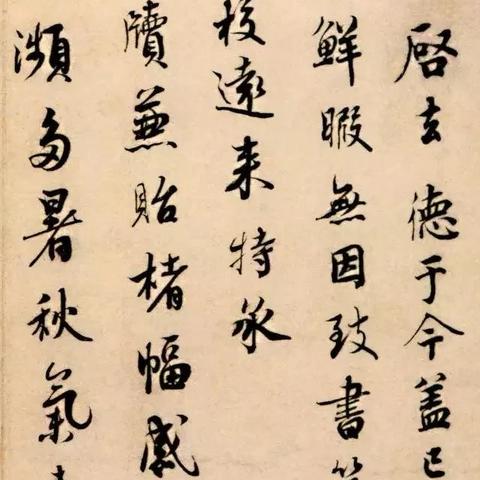 啓去德于今蓋已
鮮暇無因致書
校遠來特承
牘兼貽楮幅感
瀕多暑秋氣